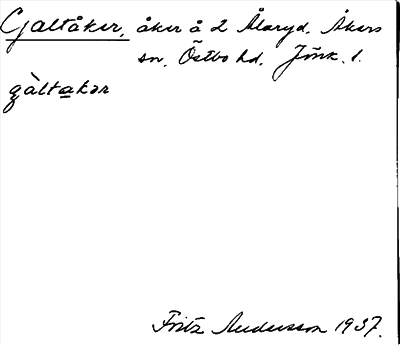 Galtåker, åker å 2 Ålaryd. Åkers
sn. Östbo hd. Jönk. l.
gàltakər
Fritz Andersson 1937.